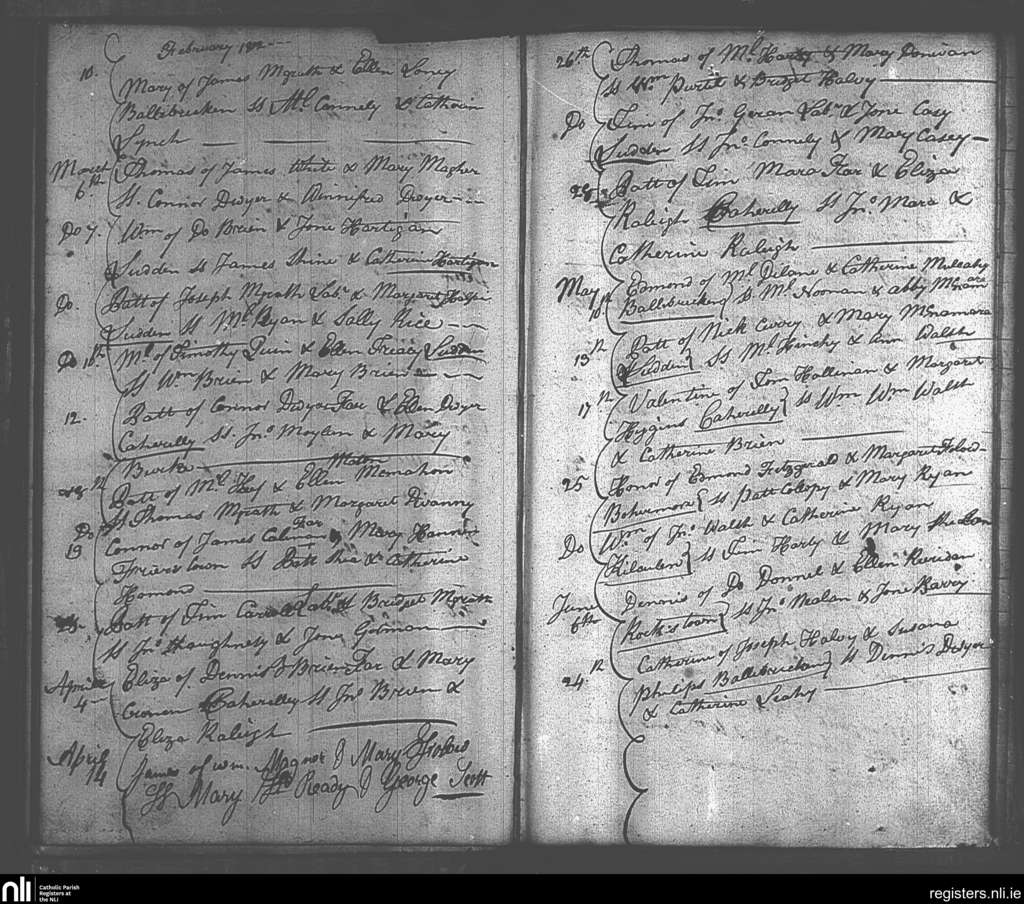 February 182
10. Mary of James Mgrath & Ellen Loney
Ballibricken Ss Ml. Connely & Cathrin
Lynch
March 6th Thomas of James White & Mary Magher
Ss. Connor Dwyer & Winnifred Dwyer
Do 7. Wm of Do Brien & Jone Hartigan
Ludden Ss James Shine & Catherin Hartigan
Do. Patt of Joseph Mgrath Labr. & Margaret
Ludden Ss Ml. Ryan & Sally Rice
Do 10th Ml. of Timothy Quin & Ellen Treacy Ludden
Ss Wm Brien & Mary Brien
12. Patt of Connor Dwyer Far & Ellen Dwyer
Caherelly Ss. Jno Moylan & Mary
Burke
Patt of Ml. Hay & Ellen Mcmahon
Ss Thomas Mgrath & Margaret
Do 19 Connor of James Calman Far & Mary
Friarstown Ss Patt Shea & Catherine
Homond
Patt of Tim Carroll Labr. & Bridget Mgrath
Ss Jno Shaughnesy & Jone Gorman
April 4 Eliza of Dennis O Brien Far & Mary
Cronen Caherelly Ss Jno Brien &
Eliza Raleigh
April 14 James of Wm. Magner & Mary
Ss Mary Ready & George Scott
26th Thomas of Ml. & Mary Donivan
Ss Wm Purtel & Bridget Halvy
Do Tim of Jno. Geran Labr. & Jone Casy
Ludden Ss Jno. Connely & Mary Casey
28 Patt of Tim Mara Far & Eliza
Raleigh Caherelly Ss Jno. Mara &
Catherin Raleigh
May 10th Edmond of Ml. Dilane & Catherine Mulcahy
Ballibricken Ss Ml. Noonan & abby
13th Patt of Nick & Mary McNamara
Ludden Ss Ml. Hinchy & Ann Walsh
17th Valentine of Tom Hallinan & Margaret
Hygins Caherelly Ss Wm Wm Walsh
& Catherin Brien
25 Honor of Edmond Fitzgerald & Margaret
Bohermore Ss Patt Colopy & Mary Ryan
Do Wm of Jno. Walsh & Catherin Ryan
Kilculen Ss Tim Harty & Mary
June 6th Dennis of Do Donnel & Ellen
Rockstown Ss Jno. Nealan & Jone Barry
24th Catherin of Joseph Halvy & Susana
Philips Ballibricken Ss Dennis Dwyer
& Catherine Leahy
nli
Catholic Parish
Registers at
the NLI
registers.nli.ie